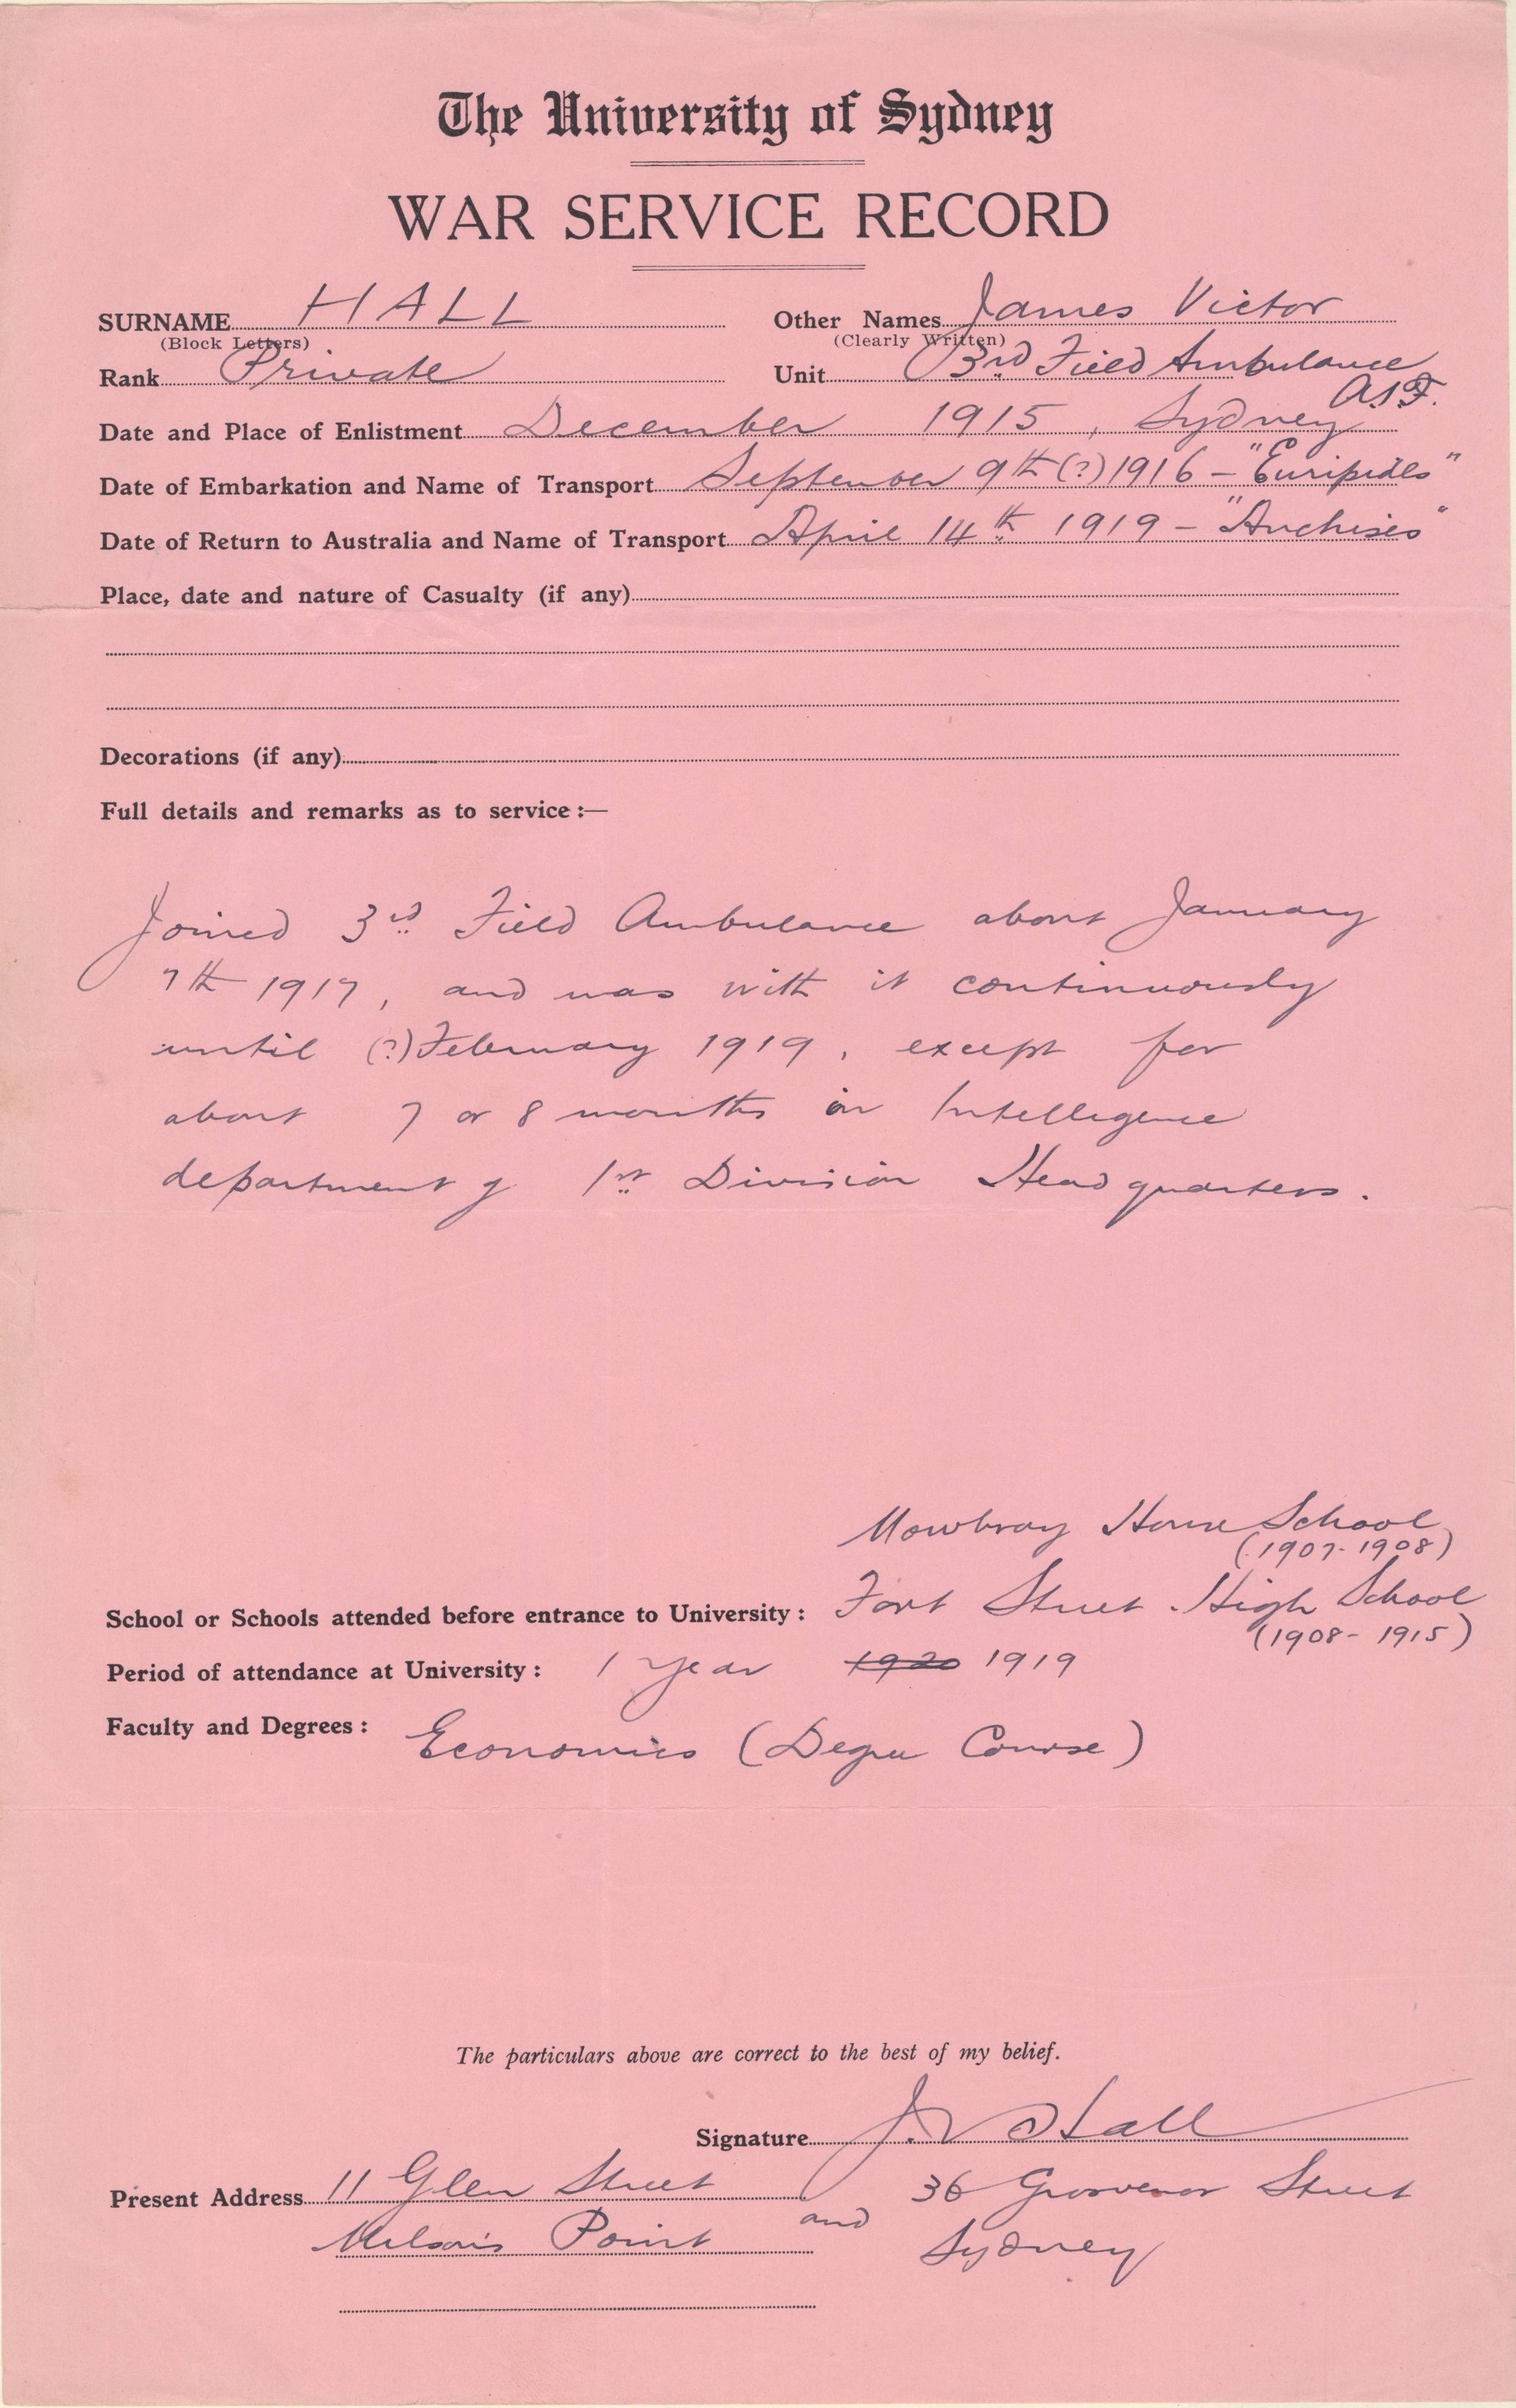 The University of Sydney
WAR SERVICE RECORD
SURNAME HALL Other Names James Victor
(Block Letters) (Clearly Written)
Rank Private Unit 3rd Field Ambulance
A.I.F.
Date and Place of Enlistment December 1915, Sydney
Date of Embarkation and Name of Transport September 9th (?) 1916 – "Euripides"
Date of Return to Australia and Name of Transport April 14th 1919 – "Anchises"
Place, date and nature of Casualty (if any)
Decorations (if any)
Full details and remarks as to service :—
Joined 3rd Field Ambulance about January
7th 1917, and was with it continuously
until (?) February 1919, except for
about 7 or 8 months in Intelligence
department of 1st Division Headquarters.
Mowbray House School
(1907-1908)
School or Schools attended before entrance to University : Fort Street High School
(1908- 1915)
Period of attendance at University : 1 year 1920 1919
Faculty and Degrees : Economics (Degree Course)
The particulars above are correct to the best of my belief.
Signature J. V Hall
Present Address 11 Glen Street and 36 Grosvenor Street
Milson's Point Sydney